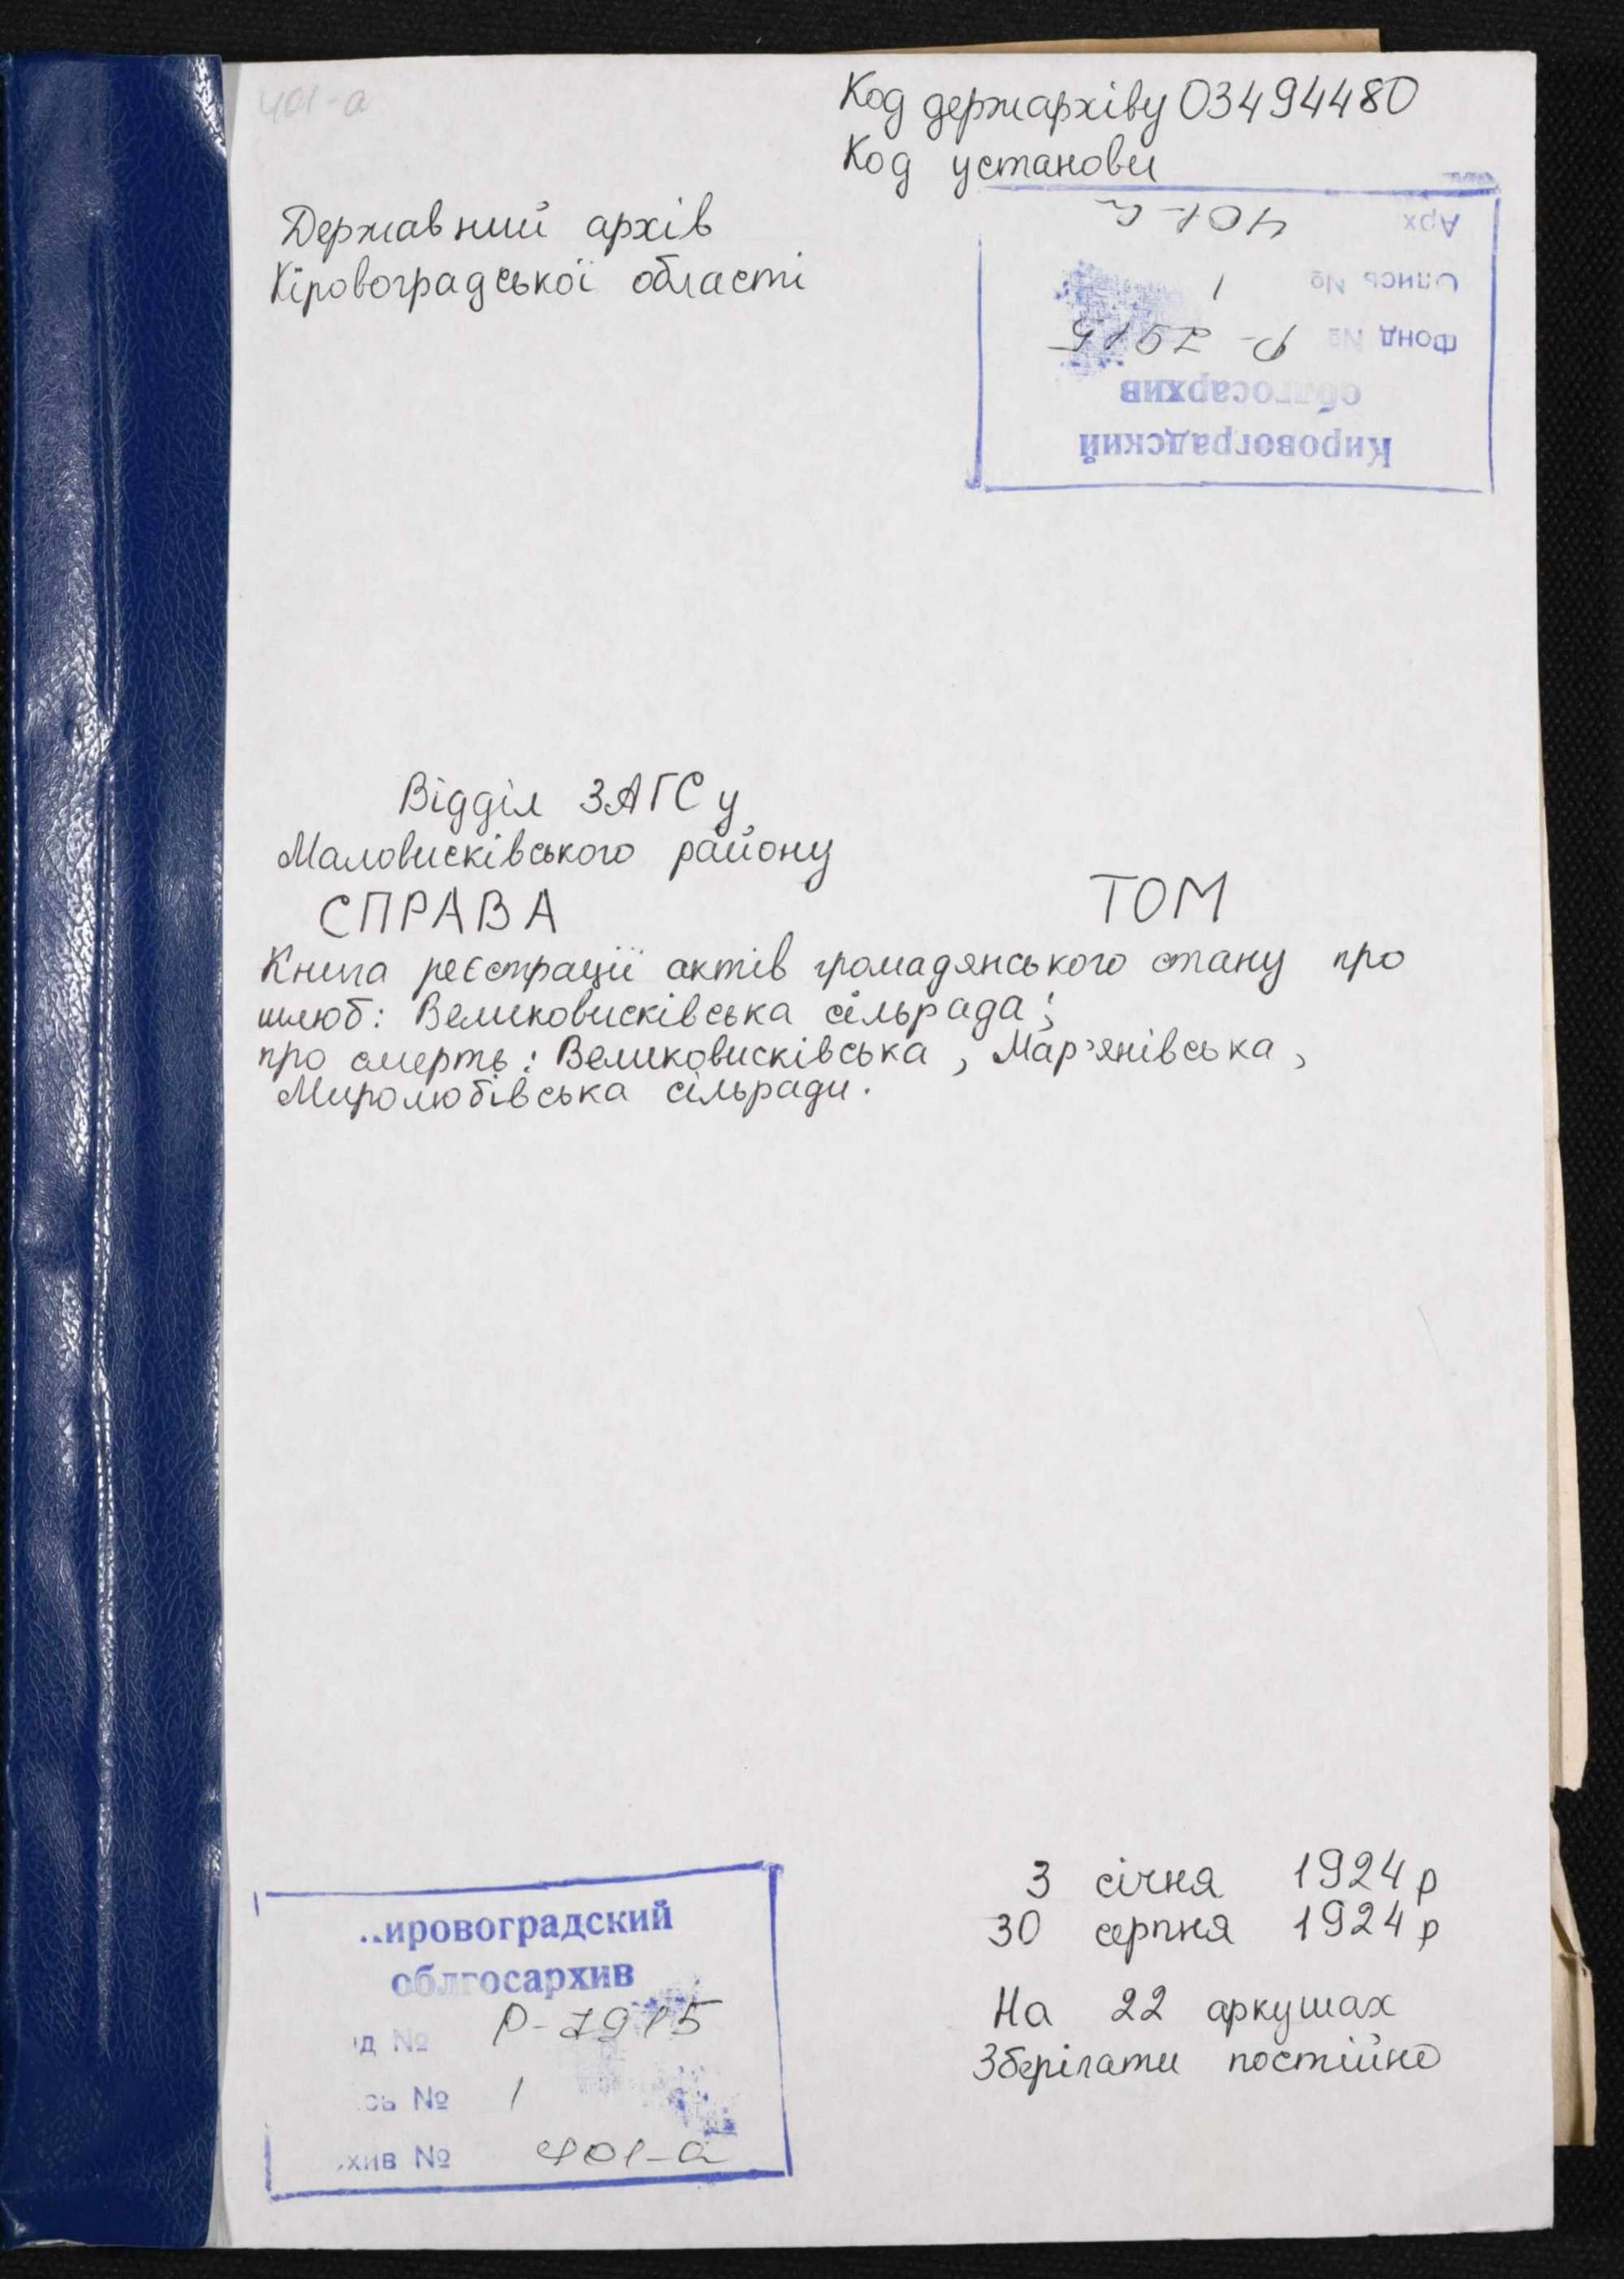 401-а
Код держархіву 03494480
Код установи
Державний архів
Кіровоградської області
Кировоградский
облгосархив
Фонд № Р-7915
Опись № 1
Арх 401-а
Відділ ЗАГСу
Маловисківського району
СПРАВА ТОМ
Книга реєстрації актів громадянського стану про
шлюб: Великовисківська сільрада;
про смерть: Великовисківська, Мар'янівська,
Миролюбівська сільради.
3 січня 1924 р
30 серпня 1924 р
На 22 аркушах
Зберігати постійно
ировоградский
облгосархив
д № Р-7915
сь № 1
хив № 401-а